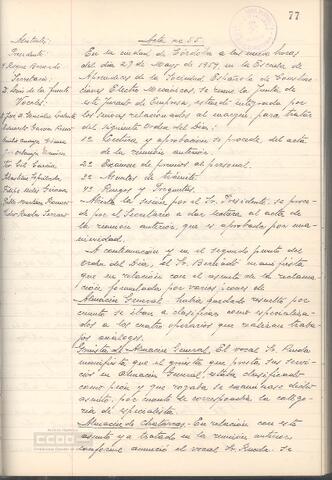 77
Asistentes
Presidente
Secretario
Vocales
Acta nº 55
En la ciudad de Córdoba a las nueve horas
del día 27 de Mayo de 1957, en la Escuela de
Aprendices de la Sociedad Española de Construc-
ciones Electro Mecánicas, se reune la Junta de
este Jurado de Empresa, estando integrada por
los señores relacionados al margen, para tratar
del siguiente Orden del Día:
1º Lectura y aprobación si procede, del acta
de la reunión anterior.
2º Examen de premios al personal.
3º Asuntos de trámite
4º Ruegos y Preguntas.
Abierta la sesión por el Sr. Presidente, se proce-
de por el Secretario a dar lectura al acta de
la reunión anterior, que es aprobada por una-
nimidad.
A continuación y en el segundo punto del
orden del Día, el Sr. manifiesta
que en relación con el asunto de la reclama-
ción formulada por varios
Almacén General había quedado resuelto por
cuanto se iban a clasificar como especializa-
dos a los cuatro operarios que realizan traba-
jos análogos.
Almacén General. El vocal Sr. Rueda
manifiesta que el que presta sus servi-
cios en Almacén General, estaba clasificado
como peón y que rogaba se examinase dicho
asunto, por cuanto le correspondía la catego-
ría de especialista.
Almacén de Chatarras. En relación con este
asunto ya tratado en la reunión anterior
conforme anunció el vocal Sr. Rueda. Se
CCOO